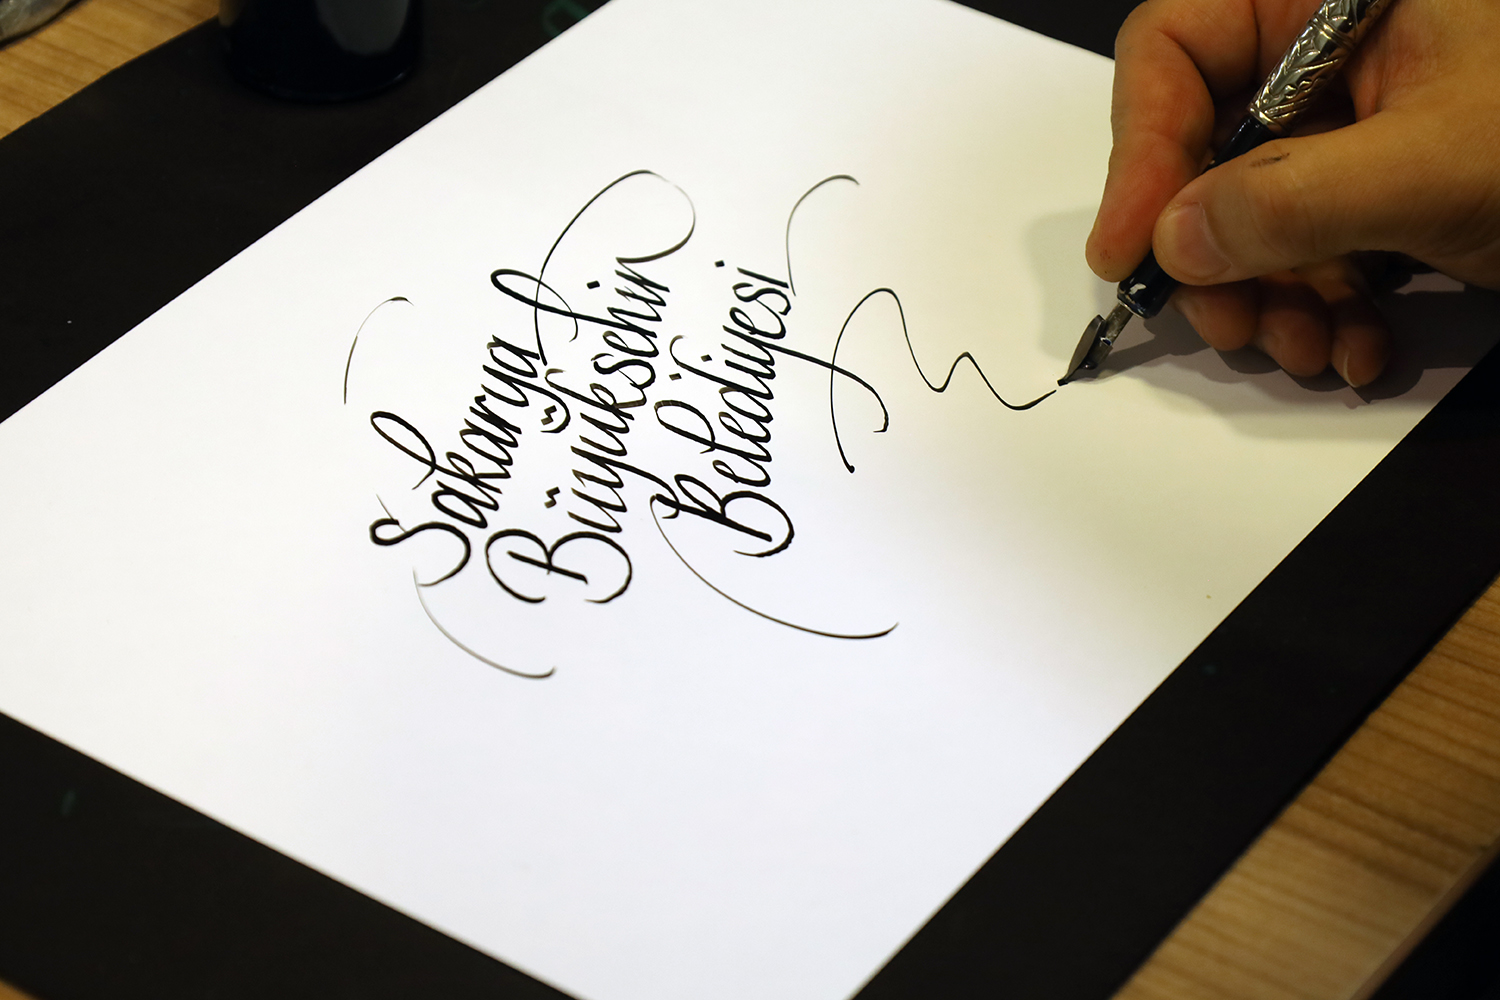 Sakarya
Büyüksehir
Belediyesi